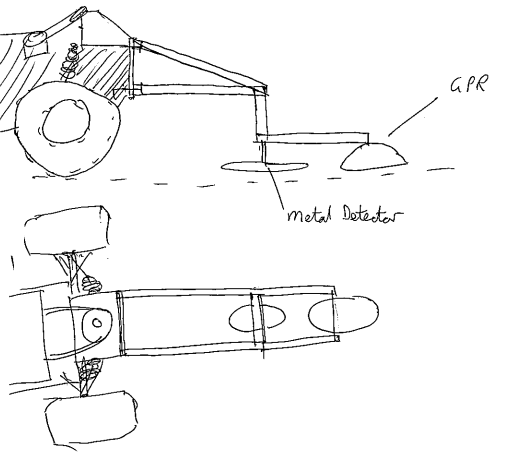 GPR
Metal Detector